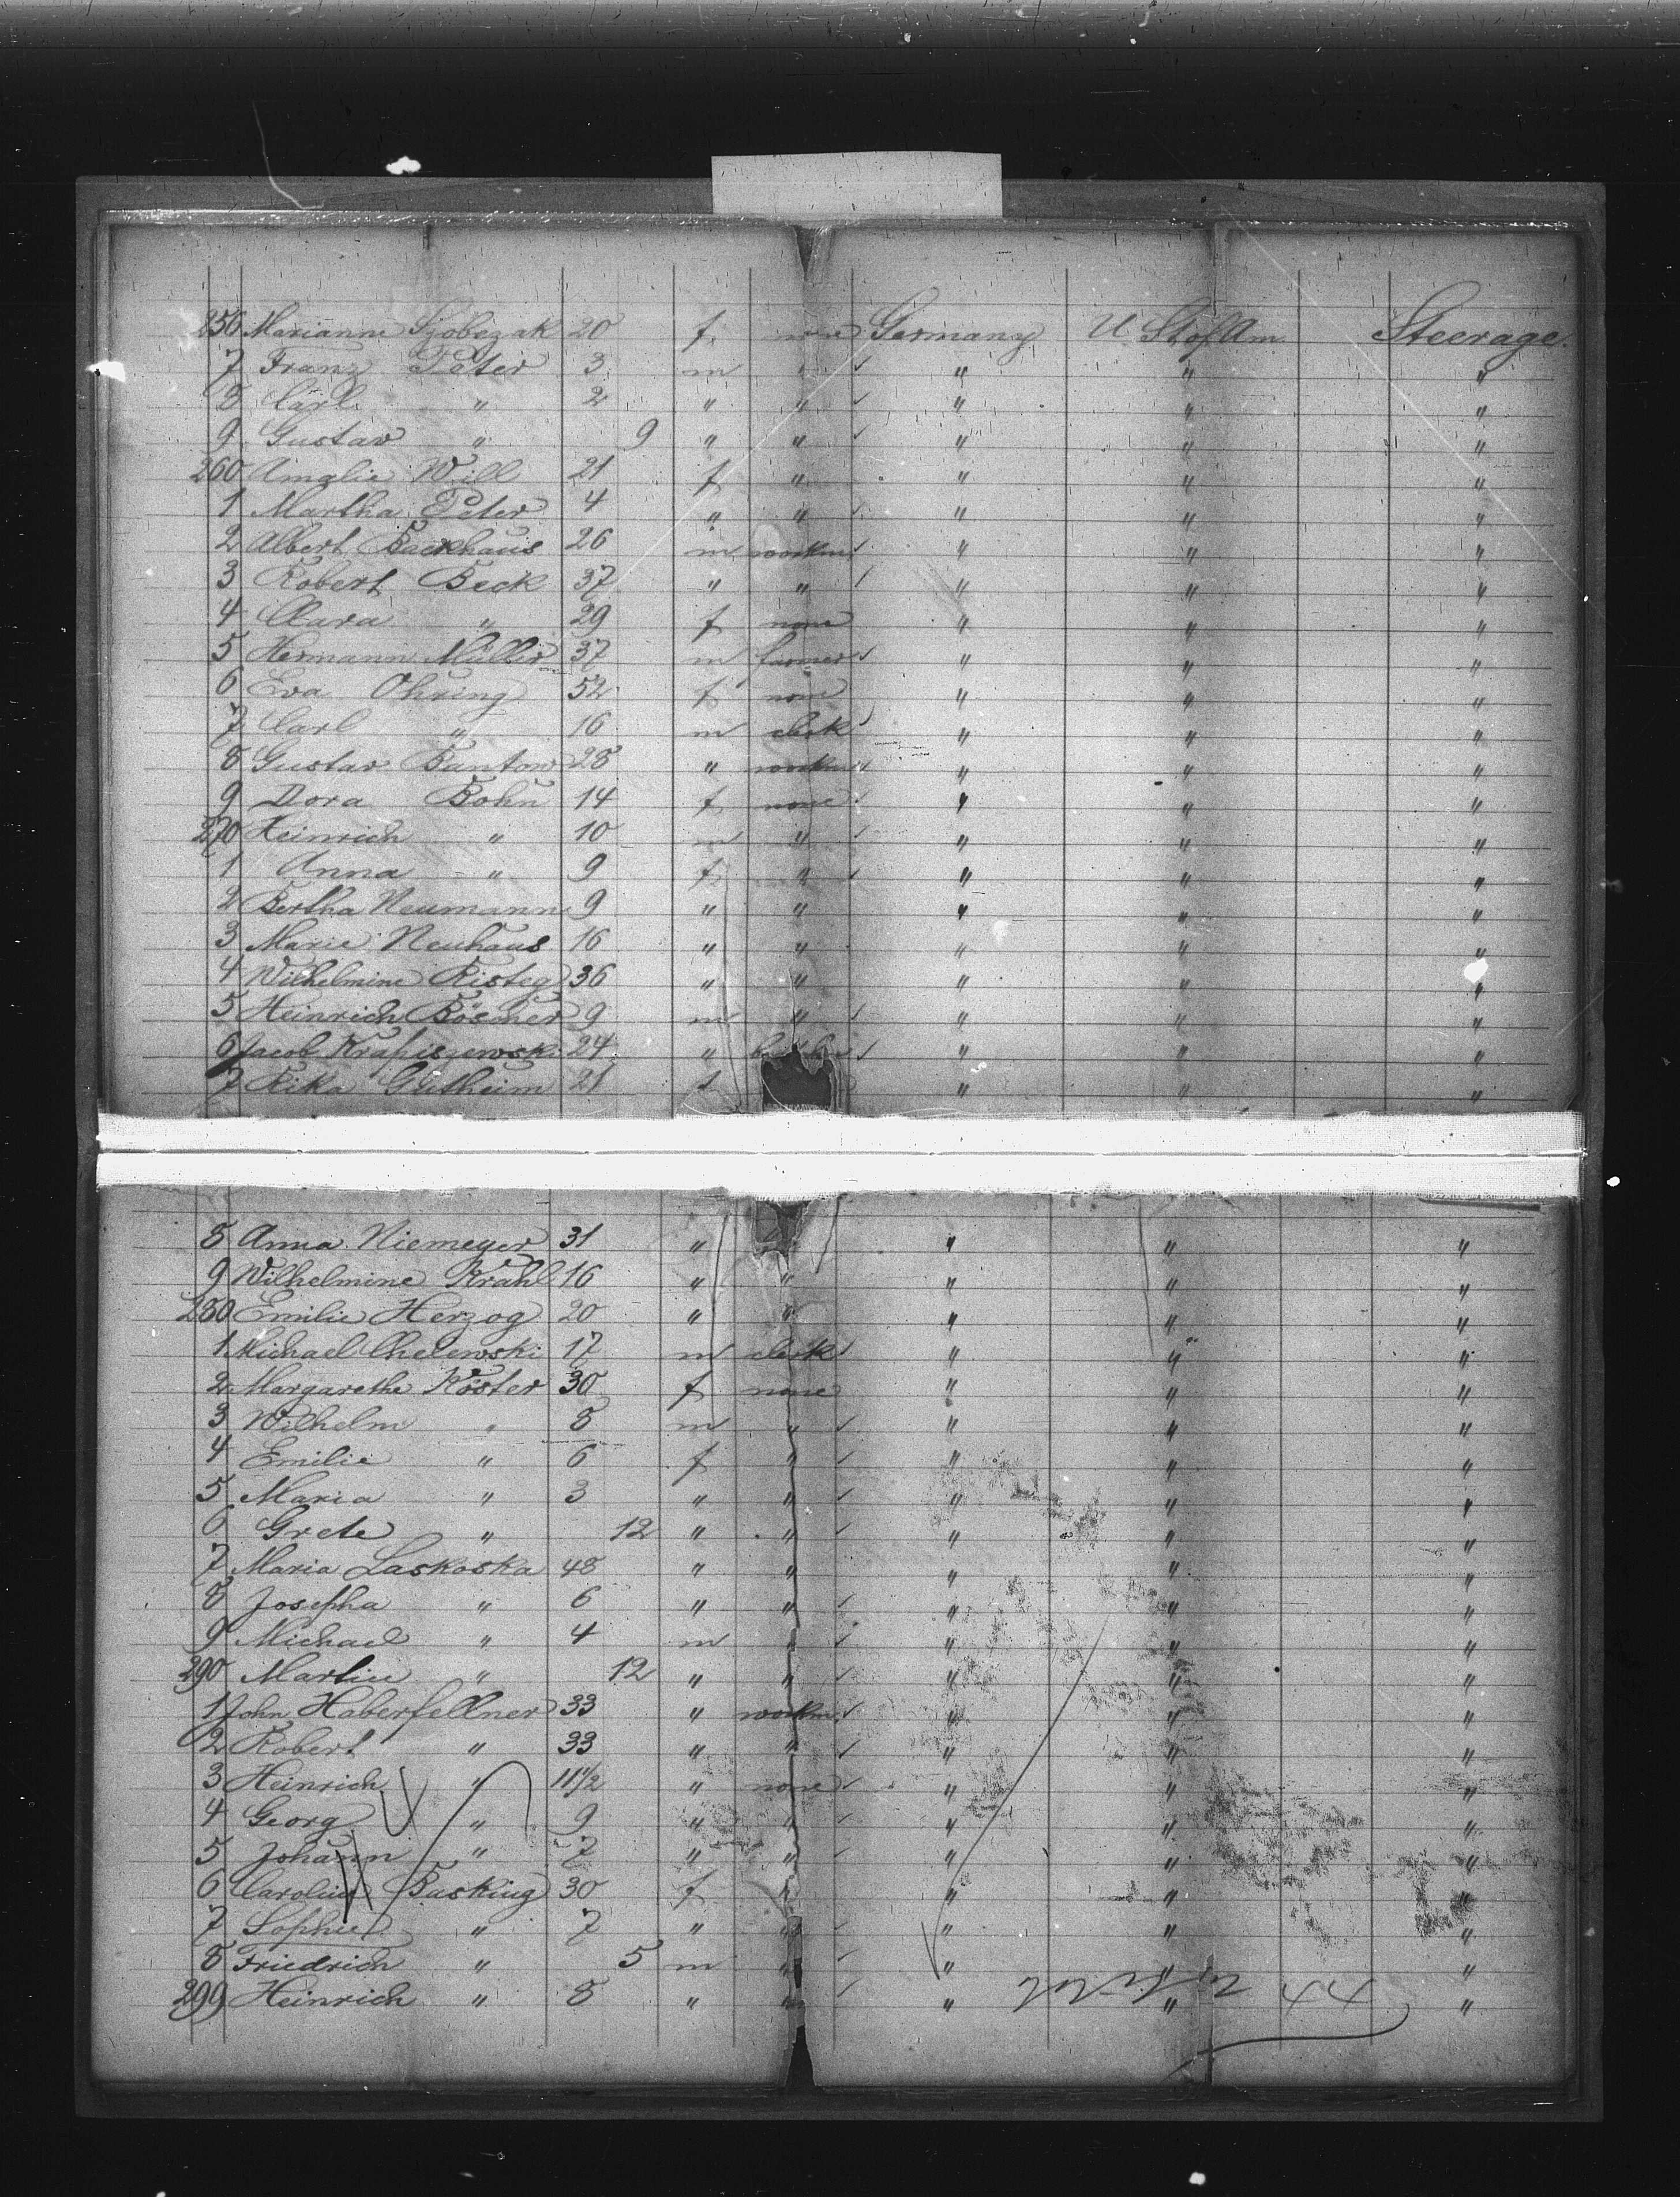 256 Marianne Szobczak 20 f. none Germany U. St of Am. Steerage.
7 Franz Peter 3 m " " " "
8 Carl " 2 " " " " "
9 Gustav " 9 " " " " "
260 Amalie Will 21 f " " " "
1 Martha Peter 4 " " " " "
2 Albert Backhaus 26 m workm " " "
3 Robert Beck 37 " " " " "
4 Clara " 29 f none " " "
5 Hermann Müller 37 m farmer " " "
6 Eva Ohring 52 f none " " "
7 Carl " 16 m clerk " " "
8 Gustav Bantow 28 " workm " " "
9 Dora Bohn 14 f none " " "
270 Heinrich " 10 m " " " "
1 Anna " 9 f " " " "
2 Bertha Neumann 9 " " " " "
3 Marie Neuhaus 16 " " " " "
4 Wilhelmine Risteg 36 " " " " "
5 Heinrich Bösmer 9 m " " " "
6 Jacob Krapiszewski 24 " " " "
7 Rika Gutheim 21 f " " "
8 Anna Niemeyer 31 " " " "
9 Wilhelmine Krahl 16 " " " " "
280 Emilie Herzog 20 " " " " "
1 Michael Chelewski 17 m clerk " " "
2 Margarethe Köster 30 f none " " "
3 Wilhelm " 8 m " " " "
4 Emilie " 6 f " " " "
5 Maria " 3 " " " " "
6 Grete " 12 " " " " "
7 Maria Laskoska 48 " " " " "
8 Josepha " 6 " " " " "
9 Michael " 4 m " " " "
290 Martin " 12 " " " " "
1 John Haberfellner 33 " workm. " " "
2 Robert " 33 " " " " "
3 Heinrich " 11 1/2 " none " " "
4 Georg " 9 " " " " "
5 Johann " 7 " " " " "
6 Caroline Basking 30 f " " " "
7 Sophie " 7 " " " " "
8 Friedrich " 5 m " " " "
299 Heinrich " 8 " " " " "